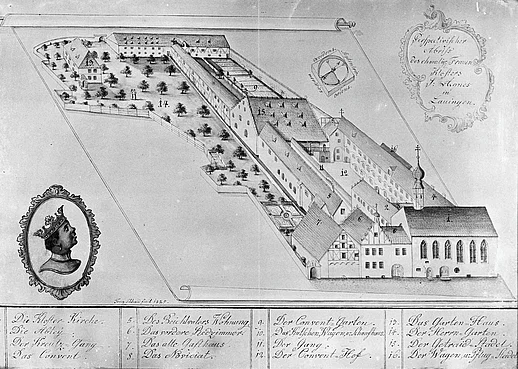 Perspectivischer
Abriß
des ehmalig: Frauen
Klosters
S. Agnes
in
Lauingen.
Die Kloster Kirche.
Die Abtey
Der Kreutz-Gang
Das Convent.
5. Des Beichtvaters Wohnung
6. Das vordere Redzimmer.
7. Das alte Gasthaus
8. Das Noviciat.
9. Der Convent Garten.
10.
11. Der Gang.
12. Der Convent Hof.
13. Das Garten Haus.
14. Der Herren Garten.
15. Der Getraid Städel.
16. Der Wagen u. Pflug Städel